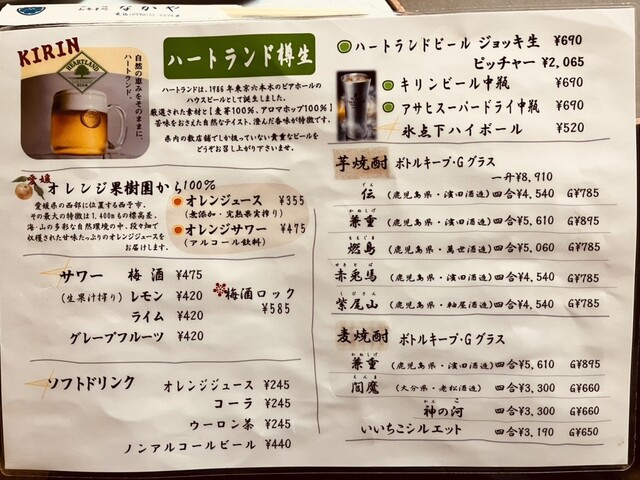 KIRIN
HEARTLAND
BEER
自然の恵みをそのままに。
ハートランド。
ハートランド樽生
ハートランドは、1986年東京六本木のビアホールの
ハウスビールとして誕生しました。
厳選された素材と【麦芽100%、アロマホップ100%】
苦味をおさえた自然なテイスト、澄んだ香味が特徴です。
県内の数店舗でしか扱っていない貴重なビールを
どうぞお召し上がり下さいませ。
愛媛
オレンジ果樹園から100%
愛媛県の西部に位置する西予市。
その最大の特徴は1,400mもの標高差。
海・山の多彩な自然環境の中、段々畑で
収穫された甘味たっぷりのオレンジジュースを
お届けします。
オレンジジュース ¥355
(無添加・完熟果実搾り)
オレンジサワー ¥475
(アルコール飲料)
サワー 梅酒 ¥475
(生果汁搾り) レモン ¥420
ライム ¥420
グレープフルーツ ¥420
梅酒ロック
¥585
ソフトドリンク オレンジジュース ¥245
コーラ ¥245
ウーロン茶 ¥245
ノンアルコールビール ¥440
ハートランドビール ジョッキ生 ¥690
ピッチャー ¥2,065
キリンビール中瓶 ¥690
アサヒスーパードライ中瓶 ¥690
氷点下ハイボール ¥520
芋焼酎 ボトルキープ・Gグラス
一升¥8,910
伝 (鹿児島県・濱田酒造) 四合¥4,540 G¥785
かねしげ
兼重 (鹿児島県・濱田酒造) 四合¥5,610 G¥895
燃島 (鹿児島県・萬世酒造) 四合¥5,060 G¥785
せきとば
赤兎馬 (鹿児島県・濱田酒造) 四合¥4,540 G¥785
しびさん
紫尾山 (鹿児島県・軸屋酒造) 四合¥4,540 G¥785
麦焼酎 ボトルキープ・Gグラス
かねしげ
兼重 (鹿児島県・濱田酒造) 四合¥5,610 G¥895
えんま
閻魔 (大分県・老松酒造) 四合¥3,300 G¥660
神の河 四合¥3,300 G¥660
いいちこシルエット 四合¥3,190 G¥650